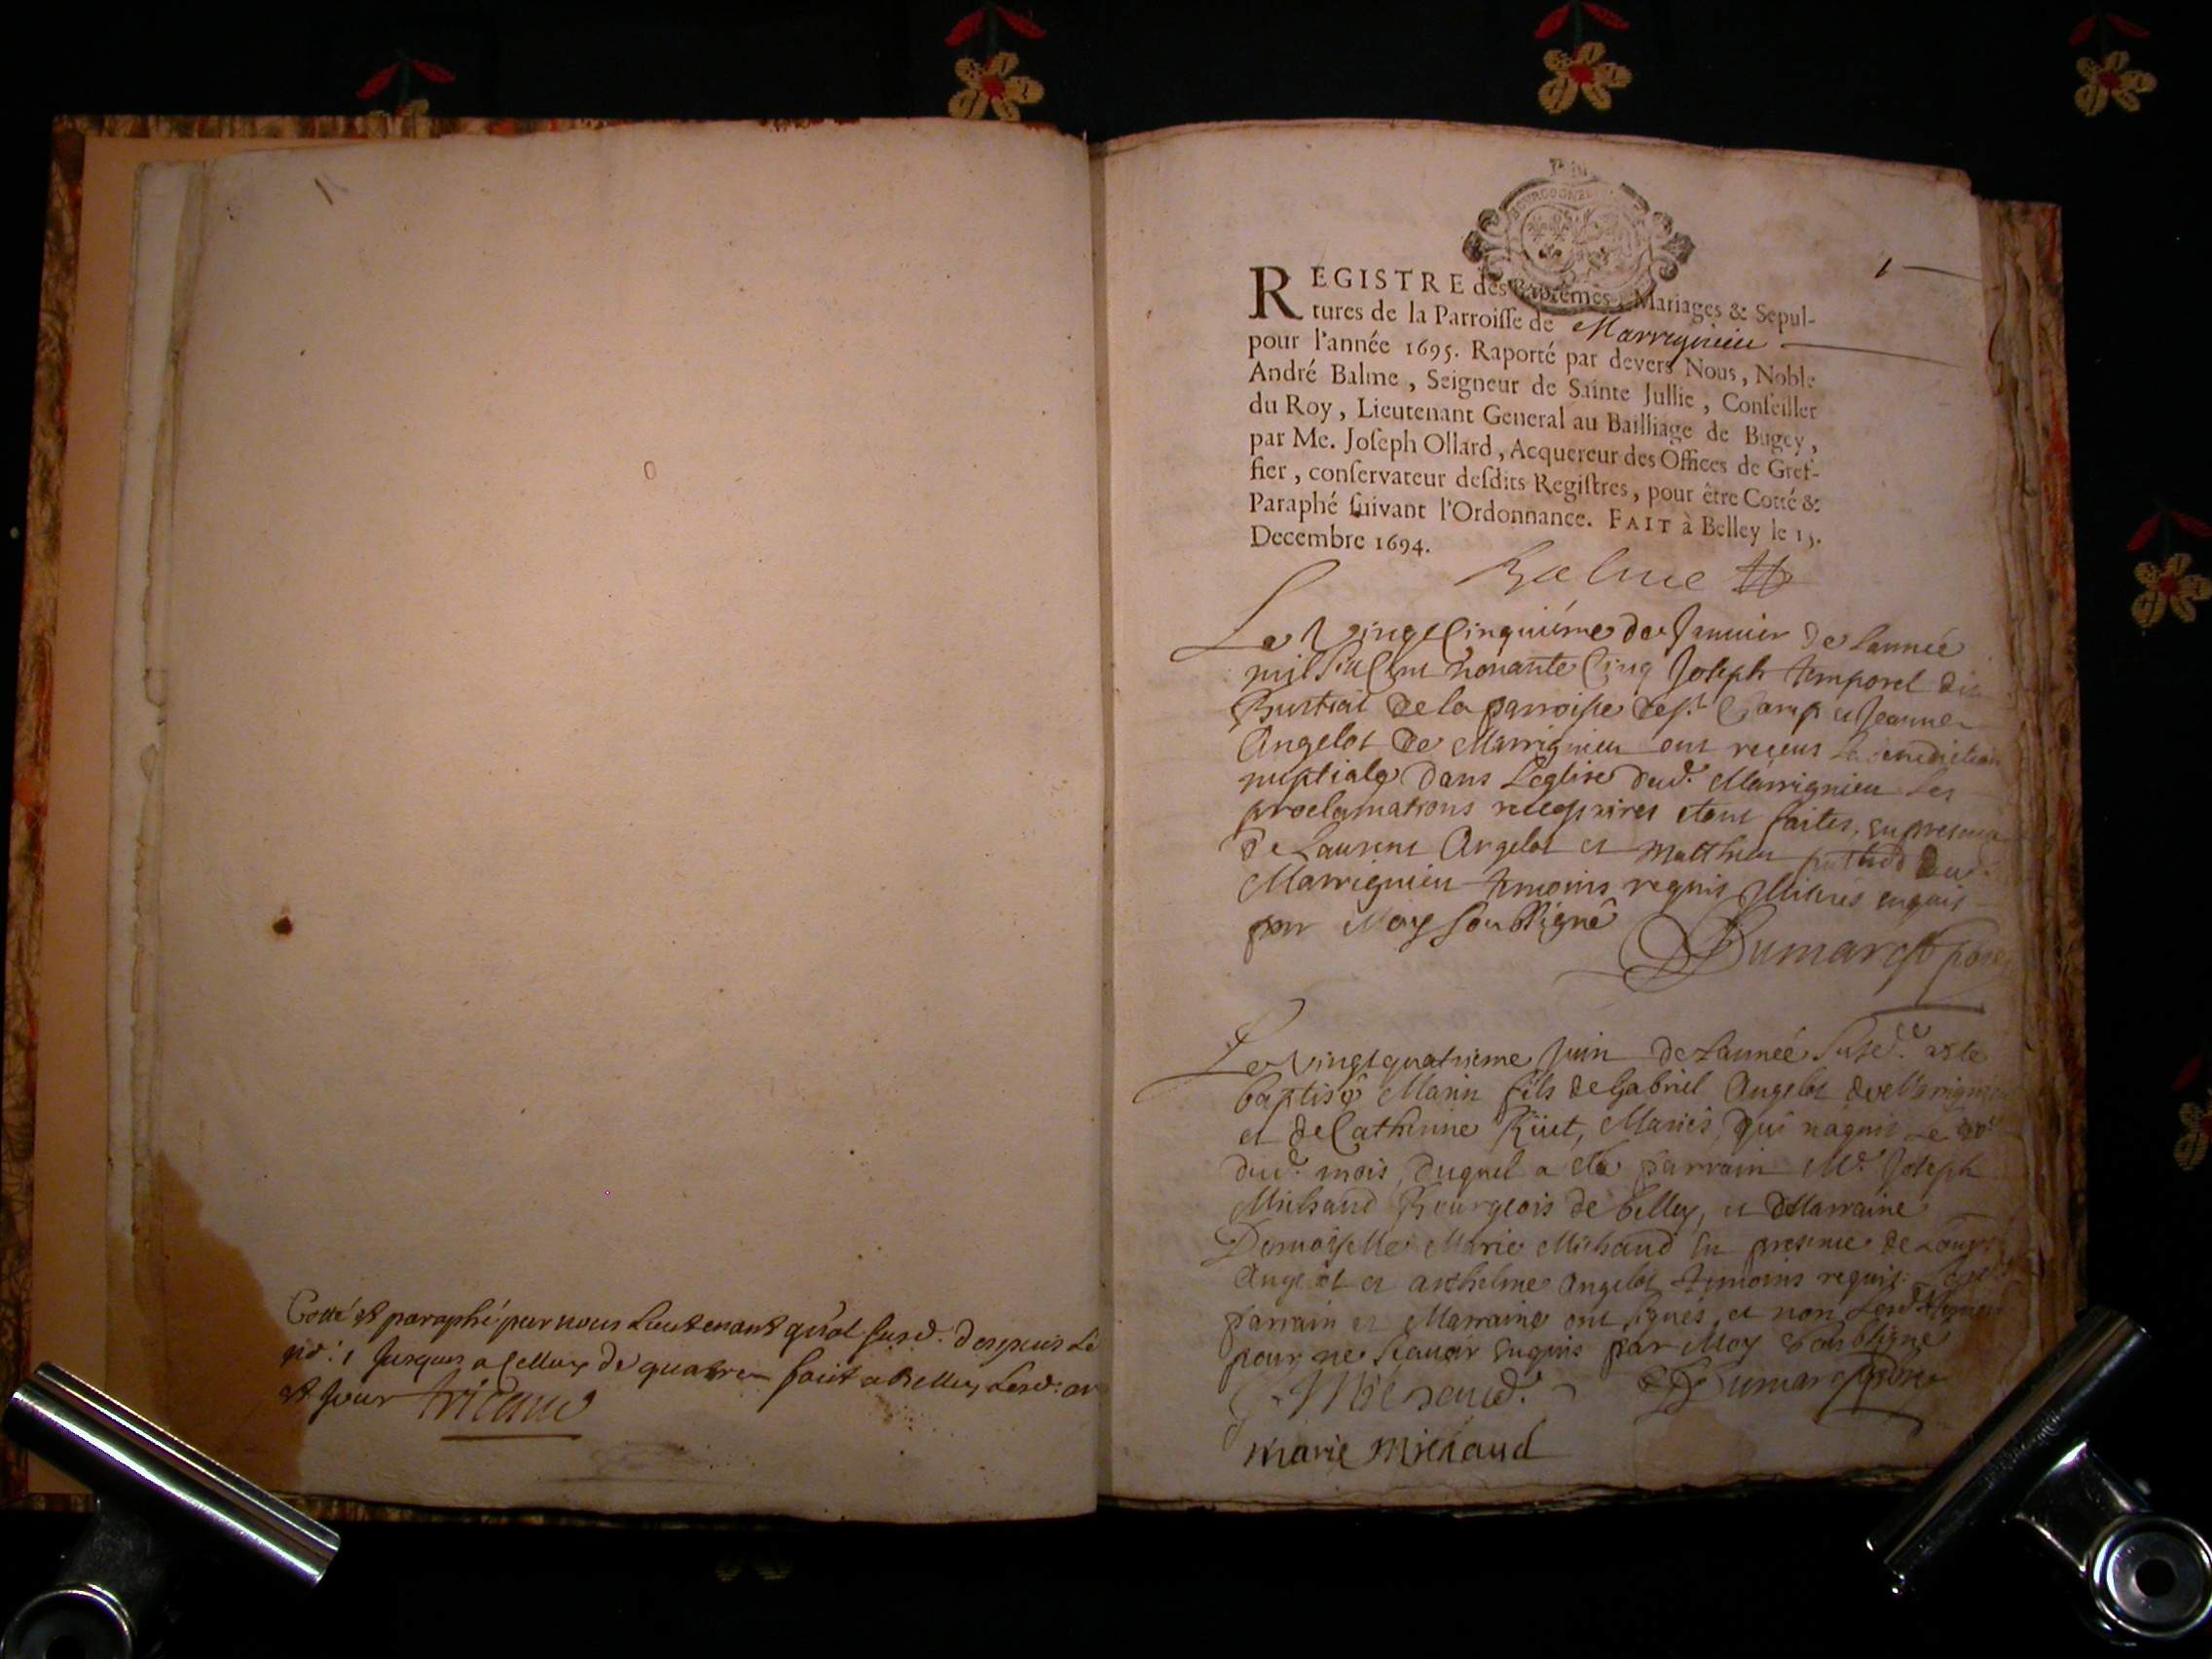 Cotté et paraphé par nous Lieutenant gñal susd. despuis Le
no: 1 jusques a celluy de quatre fait a Belley Lesd: an
et jour Tricaud
1
BOURGOGNE
REGISTRE des Baptêmes, Mariages & Sepul-
tures de la Parroisse de Marrignieu
pour l'année 1695. Raporté par devers Nous, Noble
André Balme, Seigneur de Sainte Jullie, Conseiller
du Roy, Lieutenant General au Bailliage de Bugey,
par Me. Joseph Ollard, Acquereur des Offices de Gref-
fier, conservateur desdits Registres, pour être Cotté &
Paraphé suivant l'Ordonnance. FAIT à Belley le 15.
Decembre 1694.
Balme
Le Vingt Cinquiéme de Januier de Lannée
mil six Cent nonante Cinq Joseph temporel dit
de la parroisse de st. Champ et Jeanne
Angelot de Marrignieu ont receus La benediction
nuptiale dans Leglise dud. Marrignieu Les
proclamations necessaires etant faites, en presence
de Laurent Angelot et Matthieu dud.
Marrignieu temoins requis enquis
par Moy soubsigné
Dumarest
Le Vingt quatrieme Juin de Lannée susd. a este
baptisé Marin fils de Gabriel Angelot de Marrignieu
et de Catherine Riut, Mariés, qui naquit Le
dud. mois, duquel a ete parrain Mr. Joseph
Michaud Bourgeois de belley, et Marraine
Demoiselle Marie Michaud en presence de Louys
Angelot et anthelme angelot temoins requis
parrain et Marraine ont signés, et non Lesd. temoins
pour ne scauoir enquis par Moy soubsigné
J. Michaud. Dumarest
marie michaud